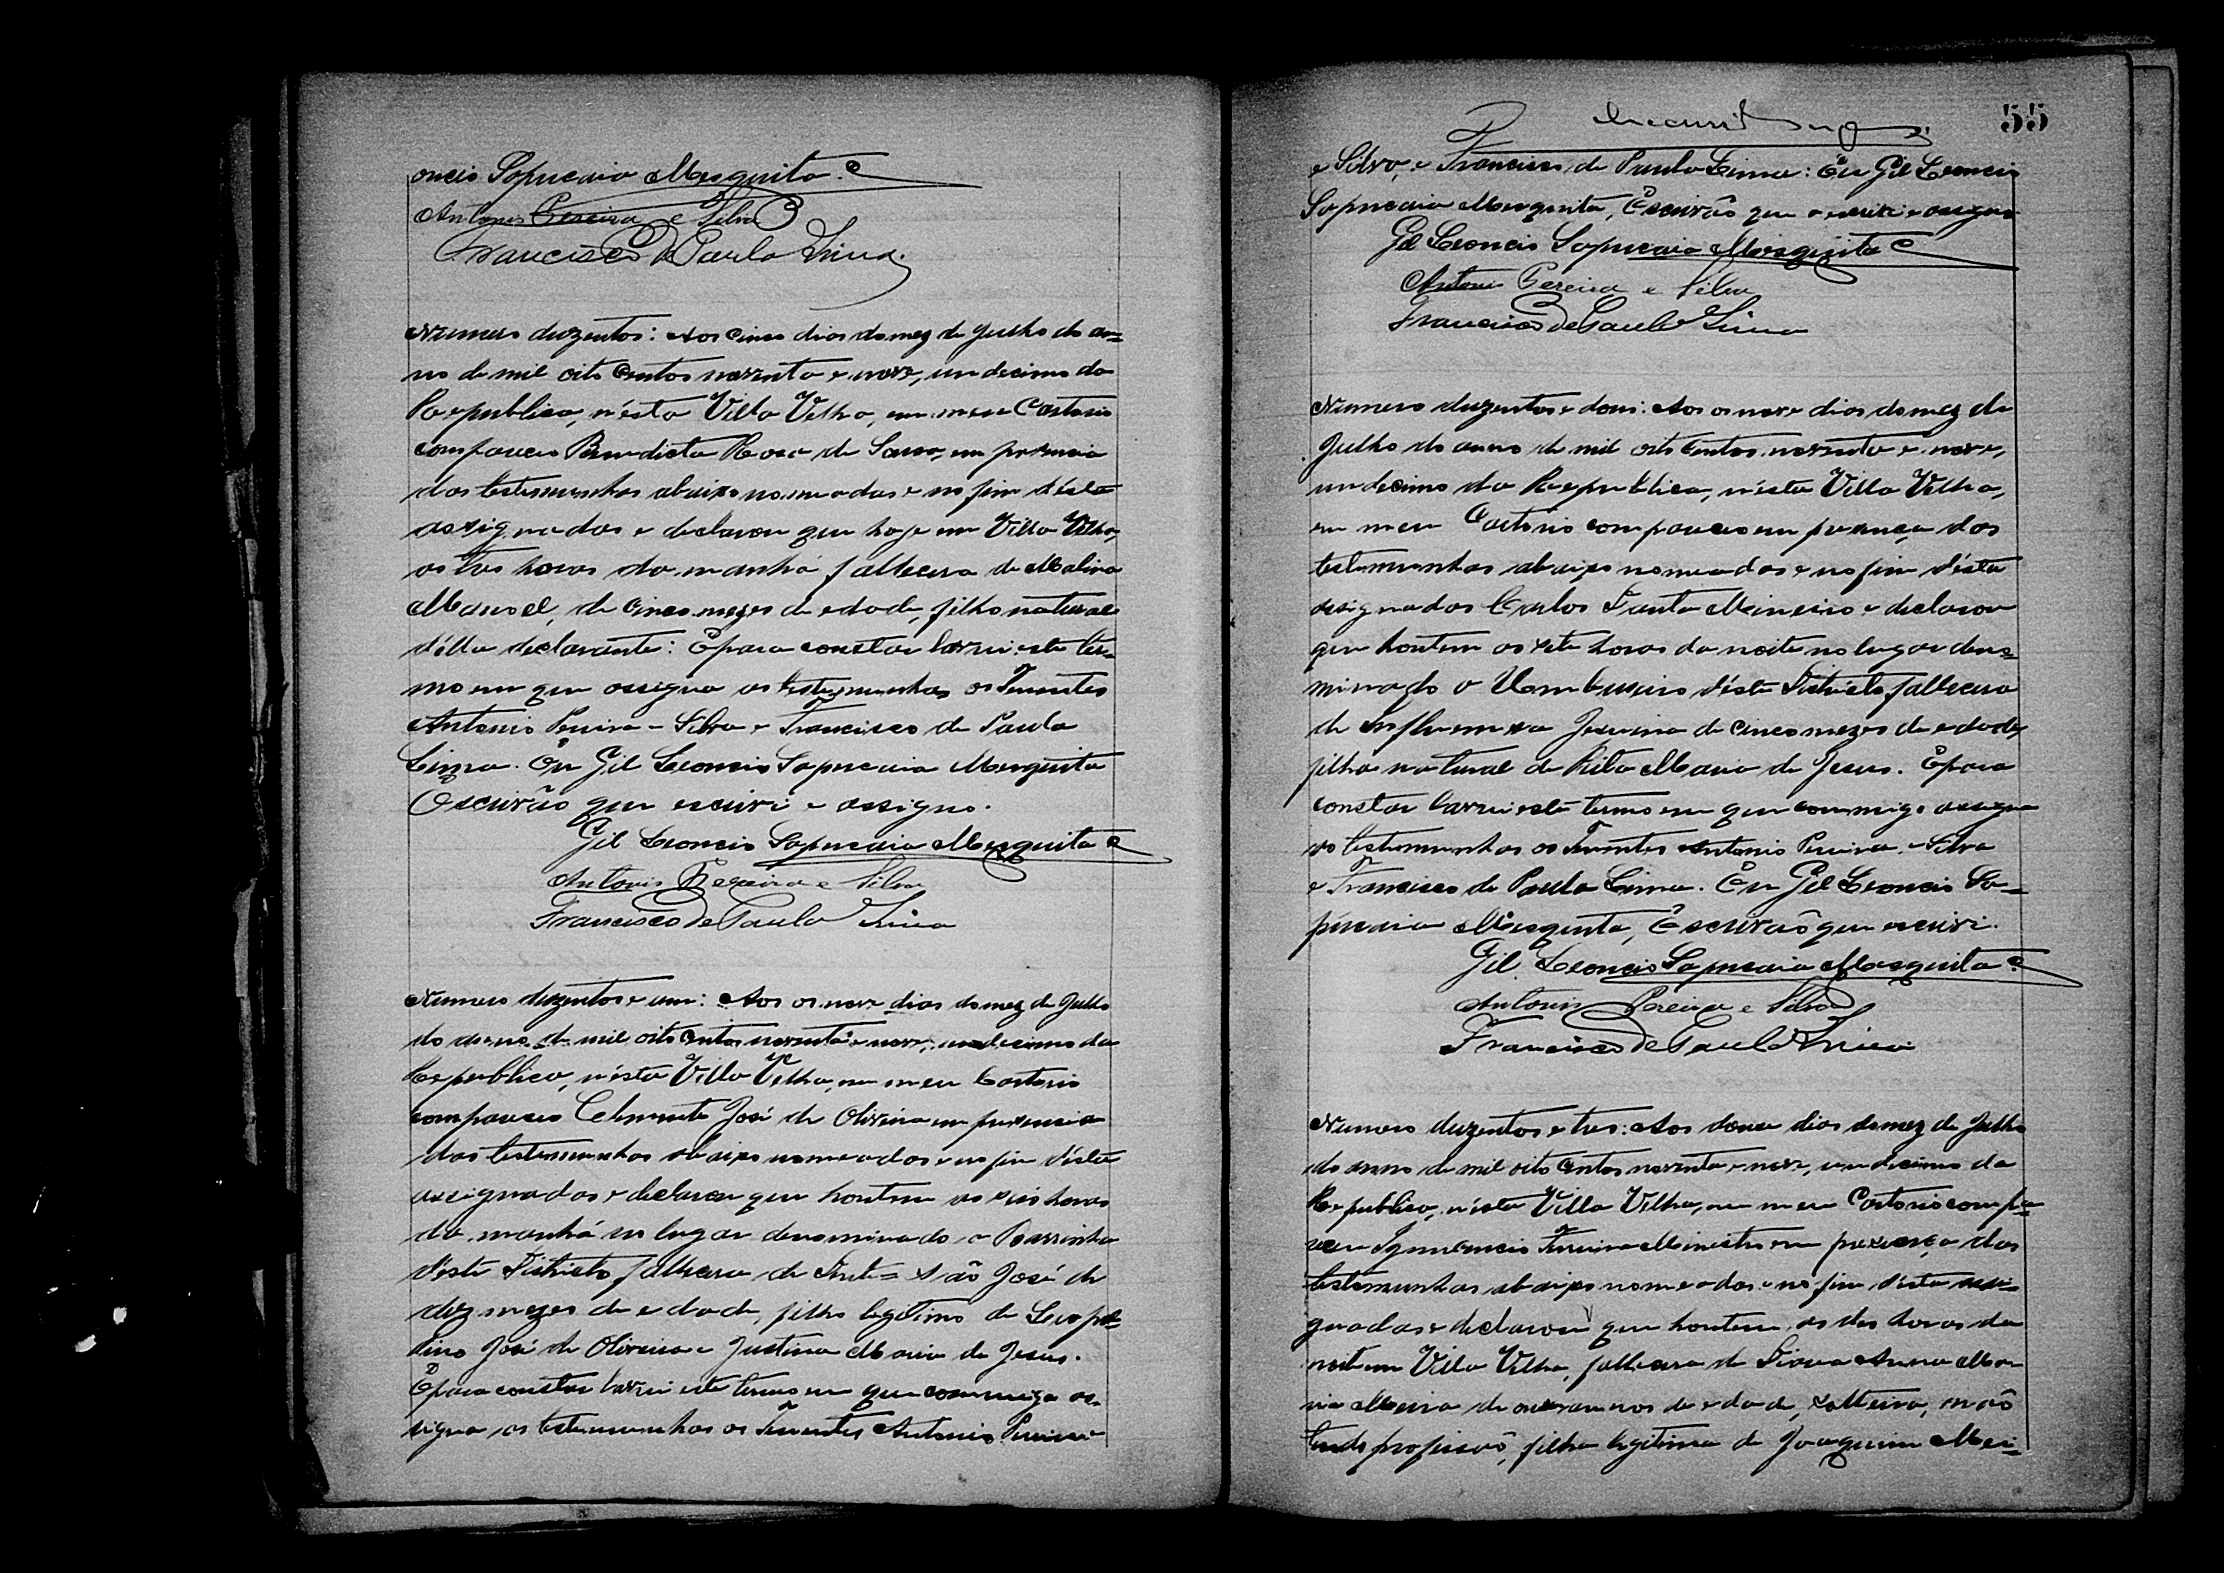 oncio Sapucaia Mesquita
Antonio Pereira e Silva
Francisco de Paula Lima
Numero duzentos: Aos cinco dias do mez de Julho do an=
no de mil oito centos noventa e nove, undecimo da
Republica, n'ésta Villa Velha, em meu Cartorio
compareceu Benedicta Rosa de Souza, em presencia
das testemunhas abaixo nomeadas e no fim d'ésta
assignadas e declarou que hoje em Villa Velha,
as tres horas da manhã fallecera de Malina
Manoel, de cinco mezes de edade, filho natural
d'élla declarante: E para constar lavrei este ter=
mo em que assigna as testemunhas os Tenentes
Antonio Pereira e Silva e Francisco de Paula
Lima. Eu Gil Leoncio Sapucaia Mesquita
Escrivão que escrivi e assigno.
Gil Leoncio Sapucaia Mesquita
Antonio Pereira e Silva
Francisco de Paula Lima
Numero duzentos e um: Aos os nove dias do mez de Julho
do anno de mil oito centos noventa e nove, undecimo da
Republica, n'ésta Villa Velha, em meu Cartorio
compareceu Clemente José de Oliveira em presencia
das testemunhas abaixo nomeadas e no fim d'ésta
assignadas e declarou que hontem as seis horas
da manhã no lugar denominado o Barrinha
d'éste Districto fallecera de José de
dez mezes de edade, filho legitimo de Leopol=
dino José de Oliveira e Justina Maria de Jesus.
E para constar lavrei este termo em que commigo as=
signa as testemunhas os Tenentes Antonio Pereira
55
e Silva, e Francisco de Paula Lima: Eu Gil Leoncio
Sapucaia Mesquita, Escrivão que o escrivi e assigno
Gil Leoncio Sapucaia Mesquita
Antonio Pereira e Silva
Francisco de Paula Lima
Numero duzentos e dous: Aos os nove dias do mez de
Julho do anno de mil oito centos noventa e nove,
undecimo da Republica, n'ésta Villa Velha,
em meu Cartorio compareceu em presença das
testemunhas abaixo nomeadas e no fim d'ésta
assignadas Carlos Mineiro e declarou
que hontem as sete horas da noite no lugar deno=
minado o d'éste Districto fallecera
de Influenza Jesuina de cinco mezes de edade,
filha natural de Rita Maria de Jesus. E para
constar lavrei este termo em que commigo assigna
as testemunhas os Tenentes Antonio Pereira e Silva
e Francisco de Paula Lima. Eu Gil Leoncio Sa=
pucaia Mesquita, Escrivão que escrivi.
Gil Leoncio Sapucaia Mesquita
Antonio Pereira e Silva
Francisco de Paula Lima
Numero duzentos e tres: Aos doze dias do mez de Julho
do anno de mil oito centos noventa e nove, undecimo da
Republica, n'ésta Villa Velha, em meu Cartorio compa=
receu em presença das
testemunhas abaixo nomeadas e no fim d'ésta assi=
gnadas e declarou que hontem as dez horas da
noite em Villa Velha, fallecera de Anna Ma
ria de annos de edade, solteira, não
tendo profissão, filha legitima de Joaquim Mei=